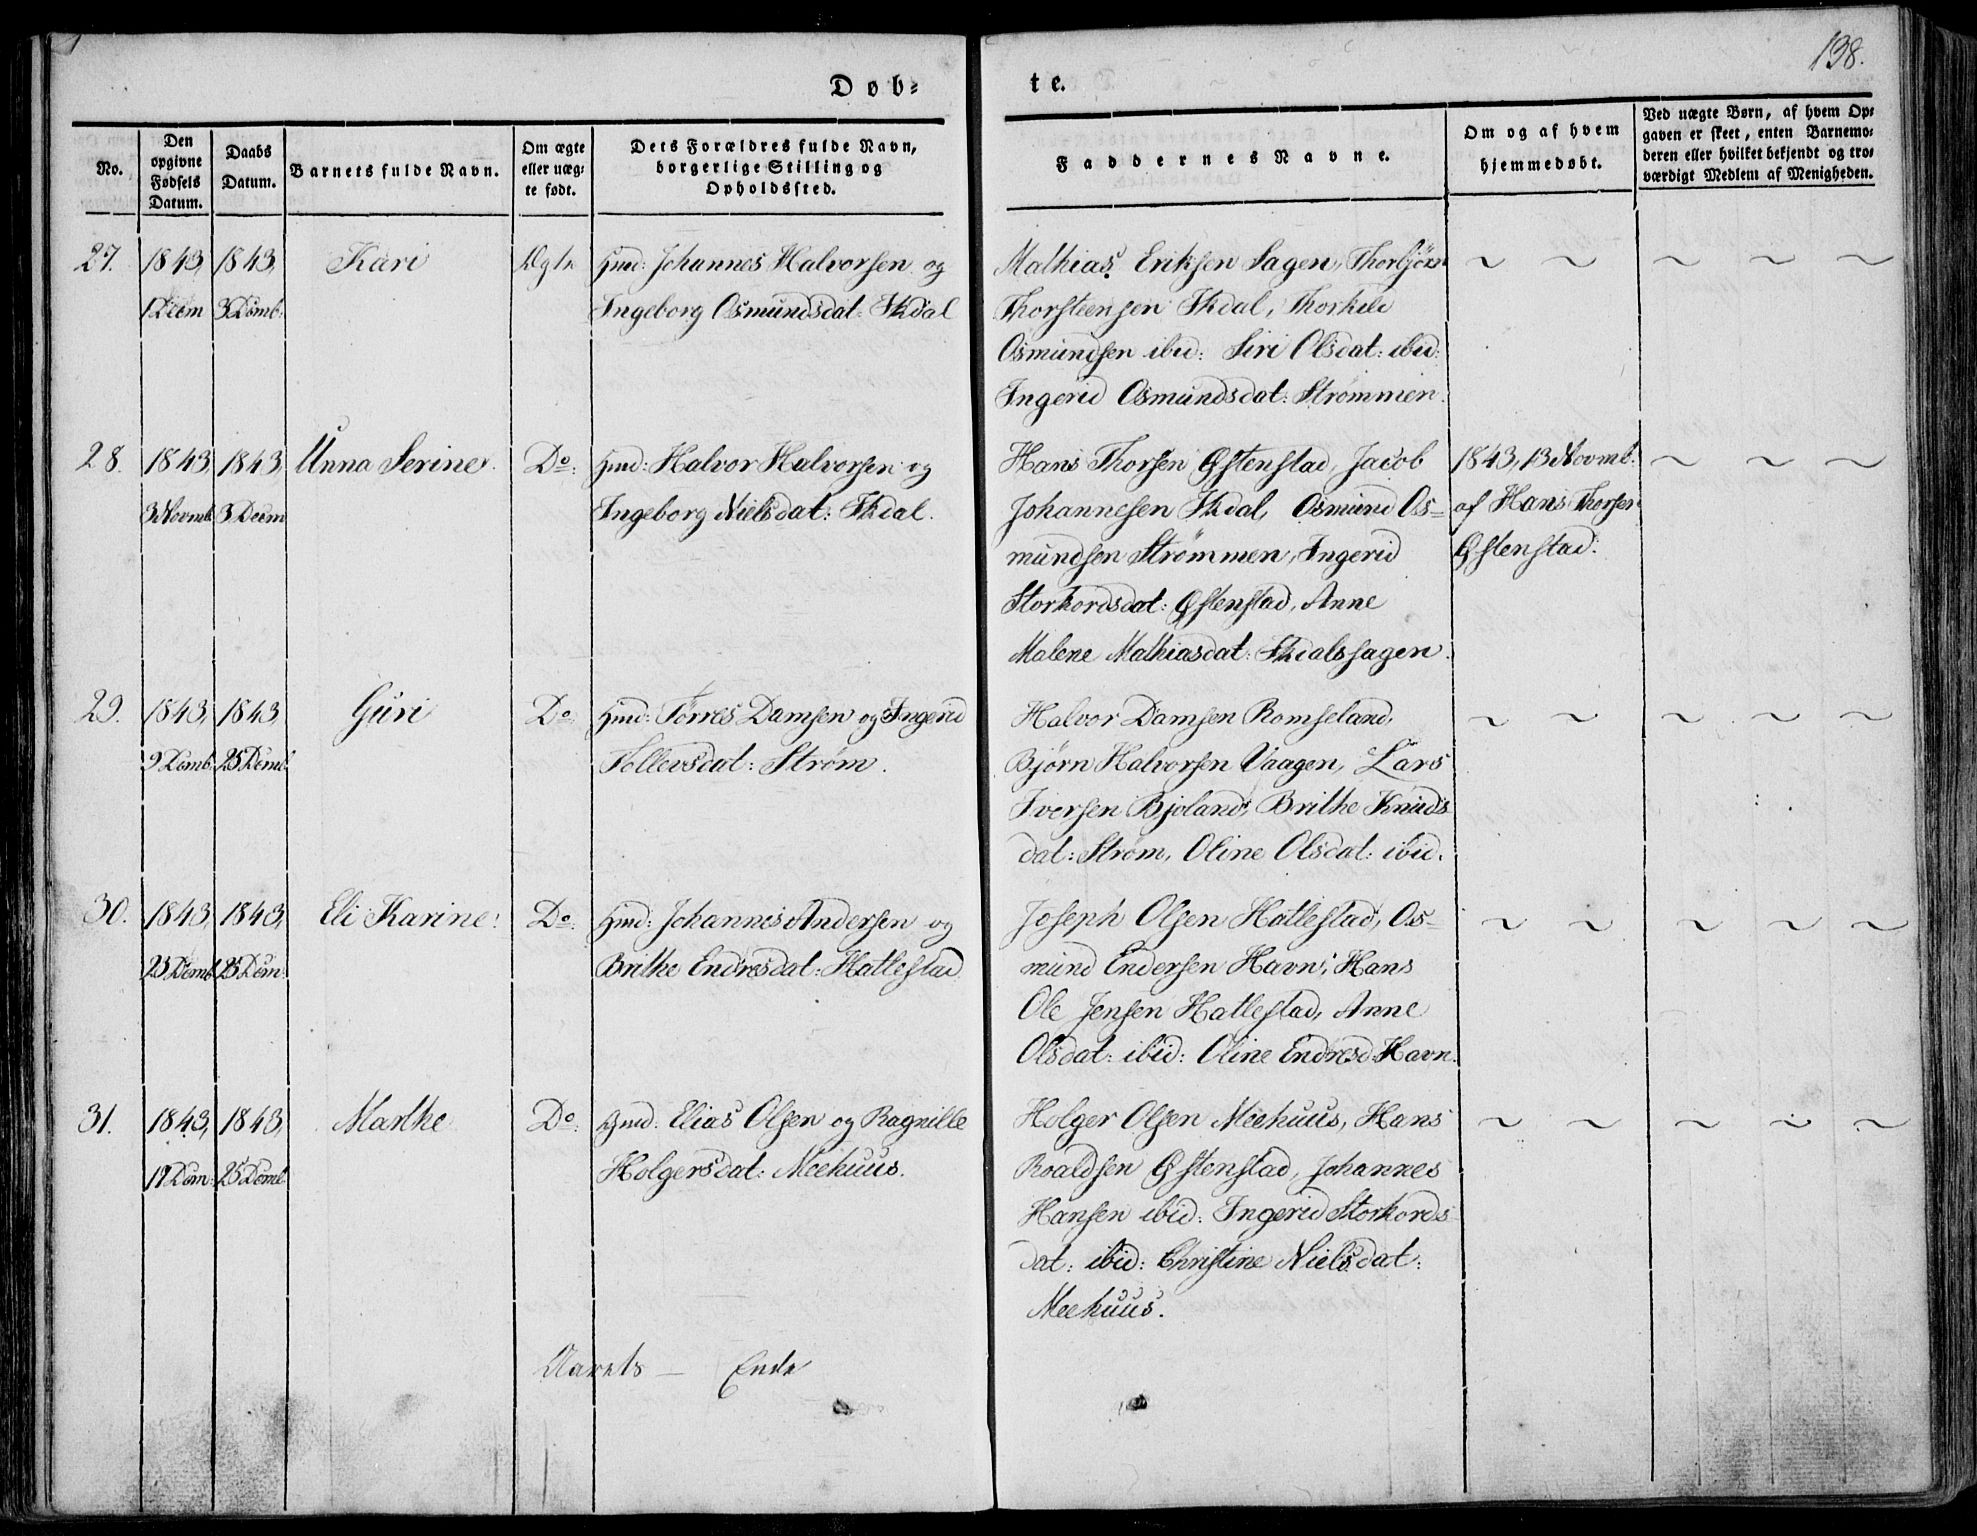 138.
Døb-
te.
No.
Den opgivne Fødsels Datum.
Daabs Datum.
Barnets fulde Navn.
Om ægte eller uæg- te født.
Dets Forældres fulde Navn, borgerlige Stilling og Opholdssted.
Faddernes Navne.
Om og af hvem hjemmedøbt.
Ved uægte Børn, af hvem Op- gaven er skeet, enten Barnemo- deren eller hvilket bekjendt og tro- værdigt Medlem af Menigheden.
27. 1843, 1843, Kari Ægte Hmd: Johannes Halvorsen og
1 Decm 3 Decmb: Ingeborg Osmundsdat: Skdal
Mathias Eriksen Sagen, Thorbjörn ~ ~ ~ ~ ~
Thorsteensen Skdal, Thorkild
Osmundsen ibid: Siri Olsdat: ibid:
Ingerid Osmundsdat: Strømmen.
28. 1843, 1843, Unna Serine. Do: Hmd: Halvor Halvorsen og
3 Novmb 3 Decm Ingeborg Nielsdat: Skdal.
Hans Thorsen Østenstad, Jacob 1843, 13 Novmb: ~ ~ ~
Johannesen Skdal, Osmund Os- af Hans Thorsen
mundsen Strømmen, Ingerid Østenstad.
Storkordsdat: Østenstad, Anne
Malene Mathiasdat: Skdalssagen.
29. 1843, 1843, Guri Do: Hmd: Tørres Damsen og Ingerid
9 Decmb: 25 Decmb: Tollevsdat: Strøm.
Halvor Damsen Romseland, ~ ~ ~ ~ ~
Bjørn Halvorsen Vaagen, Lars
Iversen Bjoland, Brithe Knuds
dat: Strøm, Oline Olsdat: ibid.
30. 1843, 1843, Eli Karine. Do: Hmd: Johannes Andersen og
23 Decmb 25 Decm: Brithe Endresdat: Hatlestad
Joseph Olsen Hatlestad, Os- ~ ~ ~ ~ ~
mund Endersen Havn, Hans
Ole Jensen Hatlestad, Anne
Olsdat: ibid: Oline Endresd Havn.
31. 1843, 1843, Marthe Do: Hmd: Elias Olsen og Ragnille
19 Decm: 25 Decmb Holgersdat: Meehuus.
Holger Olsen Meehuus, Hans ~ ~ ~ ~ ~
Roaldsen Østenstad, Johannes
Hansen ibid: Ingerid Storkords
dat: ibid: Christine Nielsdat:
Meehuus.
Aarets — Ende